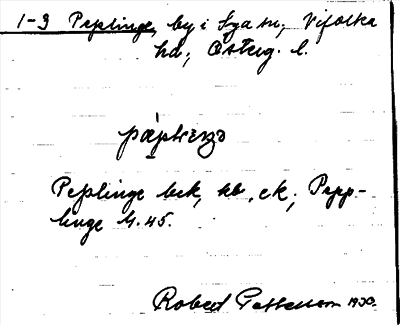 1-3 Peplinge, by i Sya sn, Vifolka
hd, Österg. l.
Peplinge bek, kb, ek; Pepp-
linge M. 45.
Robert Pettersson 1930.